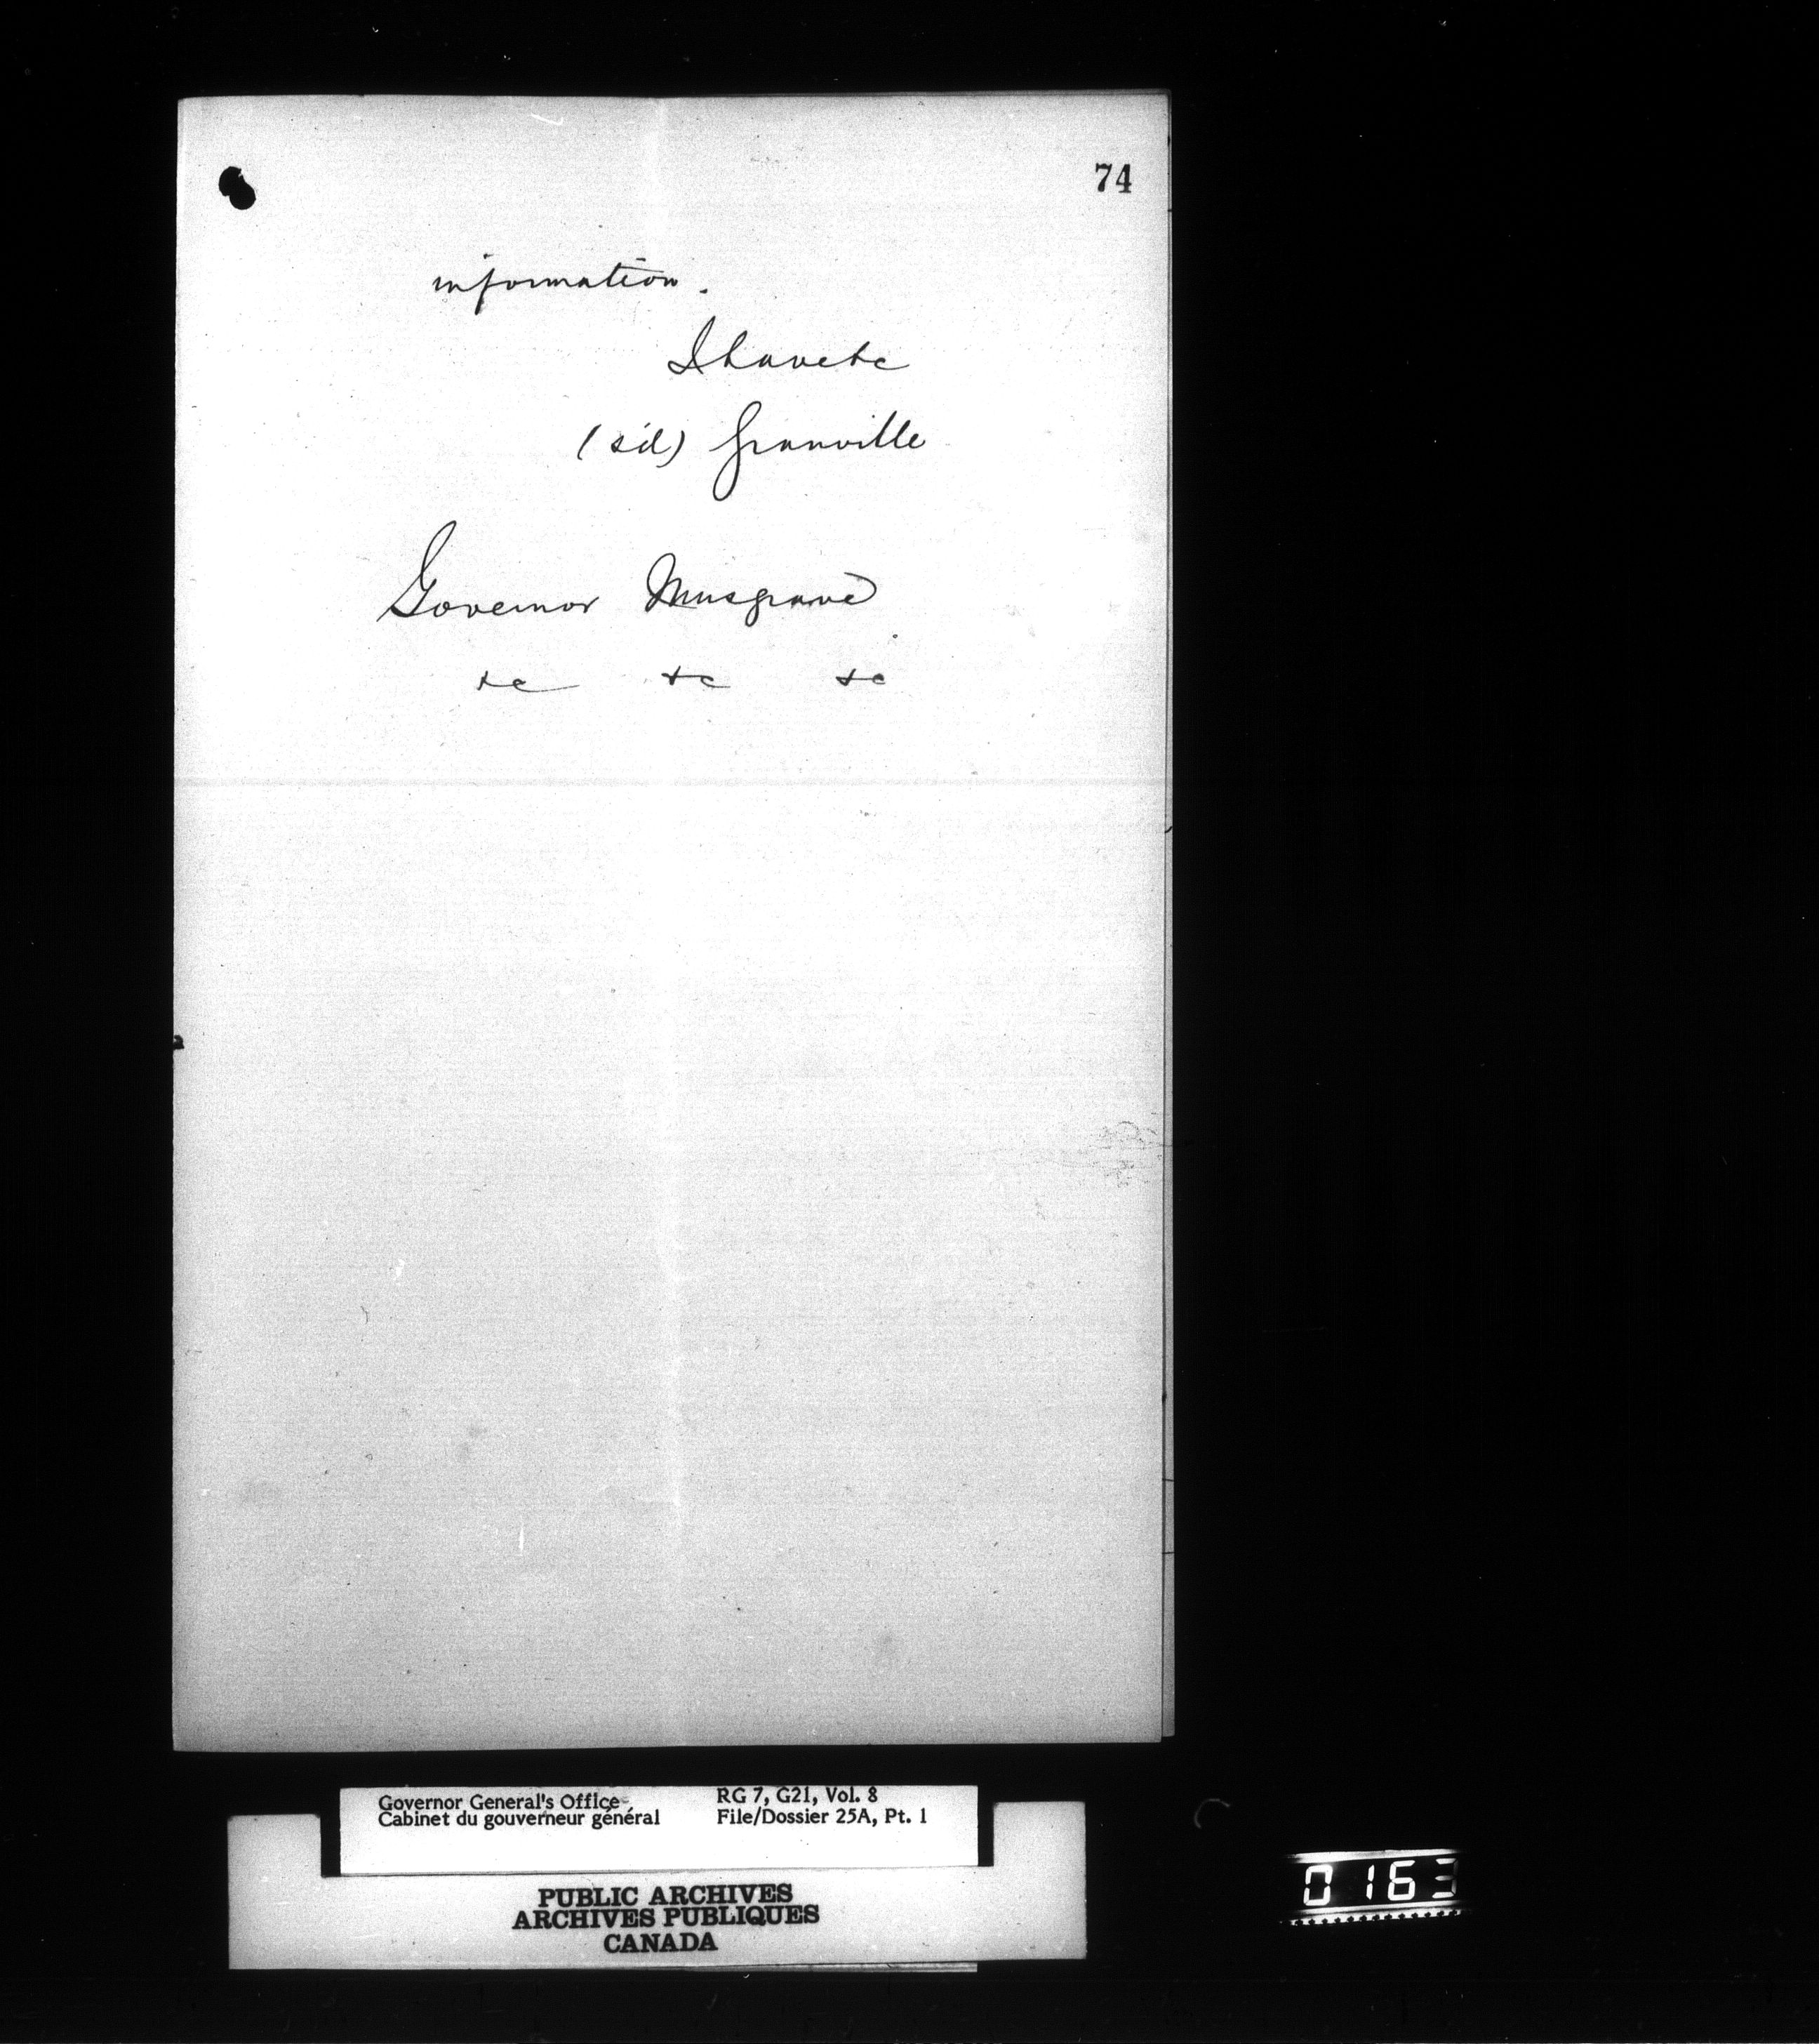 74
information.
I have &c
(sd) Granville
Governor Musgrave
&c &c &c
Governor General's Office
Cabinet du gouverneur général
RG 7, G21, Vol. 8
File/Dossier 25A, Pt. 1
PUBLIC ARCHIVES
ARCHIVES PUBLIQUES
CANADA
0163